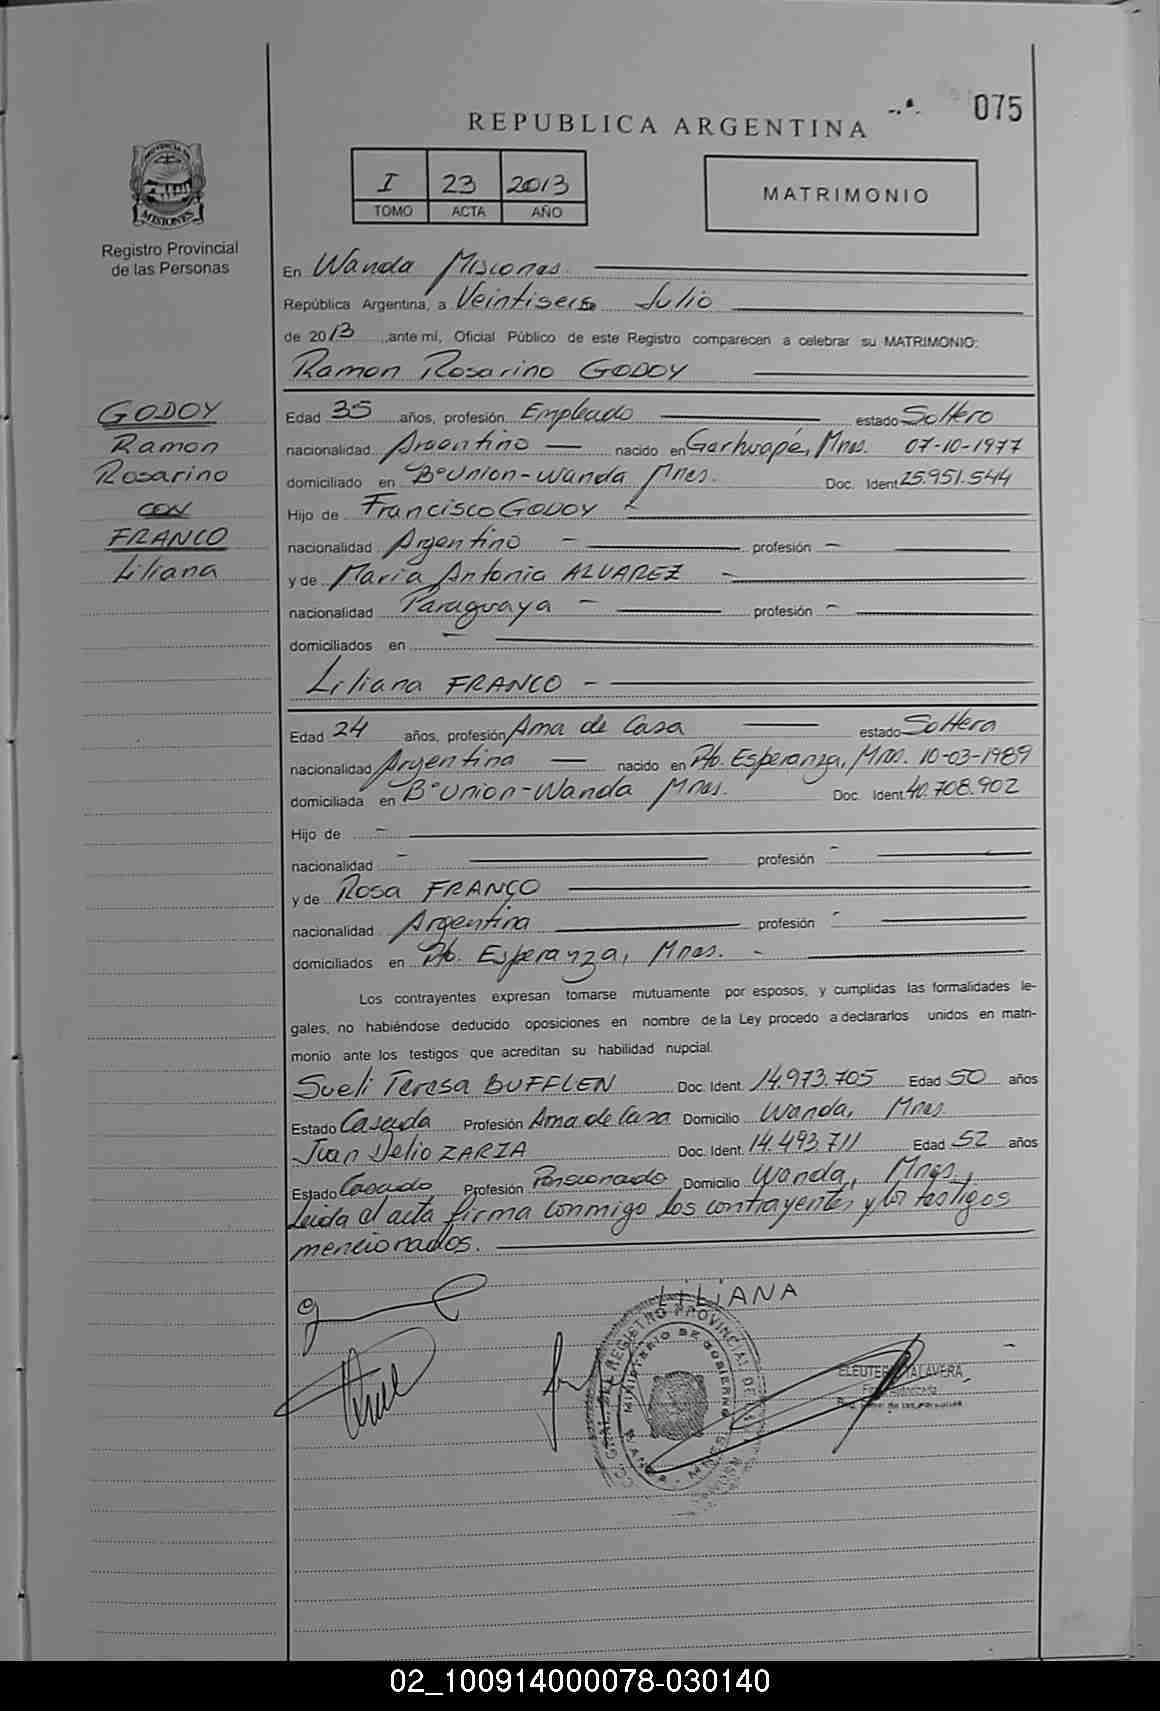 075
REPUBLICA ARGENTINA
PROVINCIA DE
MISIONES
Registro Provincial
de las Personas
I 23 2013
TOMO ACTA AÑO
MATRIMONIO
En Wanda Misiones
República Argentina, a Veintiseis Julio
de 2013 ,ante mí, Oficial Público de este Registro comparecen a celebrar su MATRIMONIO:
Ramon Rosarino GODOY
GODOY
Ramon
Rosarino
CON
FRANCO
Liliana
Edad 35 años, profesión Empleado estado Soltero
nacionalidad Argentino — nacido en Garhuapé, Mnes. 07-10-1977
domiciliado en B° Union-Wanda Mnes. Doc. Ident 25.951.544
Hijo de Francisco GODOY
nacionalidad Argentino - profesión -
y de Maria Antonia ALVAREZ -
nacionalidad Paraguaya - profesión -
domiciliados en -
Liliana FRANCO -
Edad 24 años, profesión Ama de Casa estado Soltera
nacionalidad Argentina — nacido en Pto. Esperanza, Mnes. 10-03-1989
domiciliada en B° Union-Wanda Mnes. Doc. Ident 40.708.902
Hijo de -
nacionalidad - profesión -
y de Rosa FRANCO
nacionalidad Argentina profesión -
domiciliados en Pto. Esperanza, Mnes. -
Los contrayentes expresan tomarse mutuamente por esposos, y cumplidas las formalidades le-
gales, no habiéndose deducido oposiciones en nombre de la Ley procedo a declararlos unidos en matri-
monio ante los testigos que acreditan su habilidad nupcial.
Sueli Teresa BUFFLEN Doc. Ident. 14.973.705 Edad 50 años
Estado Casada Profesión Ama de Casa Domicilio Wanda, Mnes.
Juan Delio ZARZA Doc. Ident. 14.493.711 Edad 52 años
Estado Casado Profesión Pensionado Domicilio Wanda, Mnes.
Leida el acta firma conmigo los contrayentes y los testigos
mencionados.
LILIANA
REGISTRO PROVINCIAL DE
MINISTERIO DE GOBIERNO
TALAVERA
02_100914000078-030140